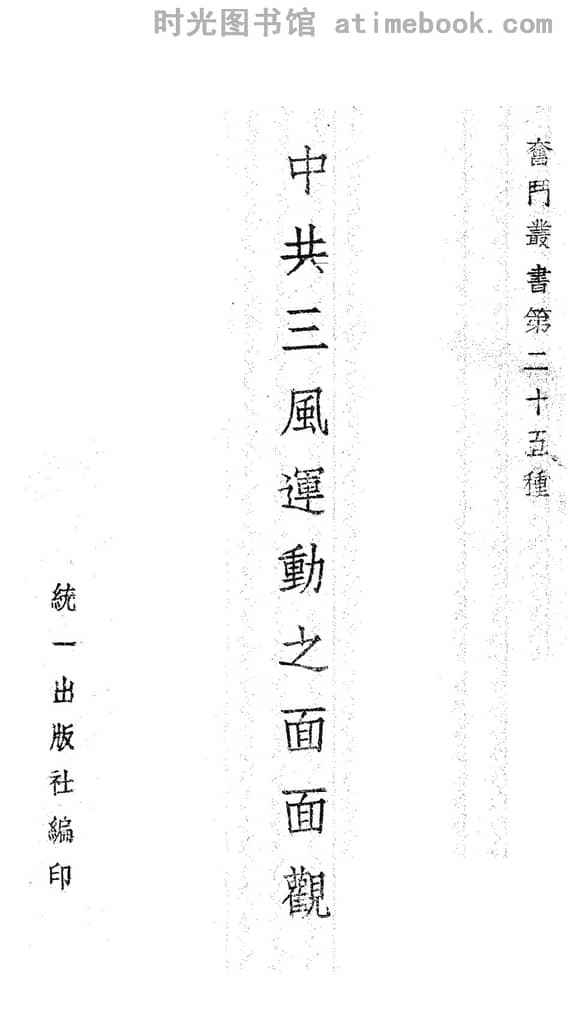 时光图书馆 atimebook.com
奮鬥叢書第二十五種
中共三風運動之面面觀
統一出版社編印